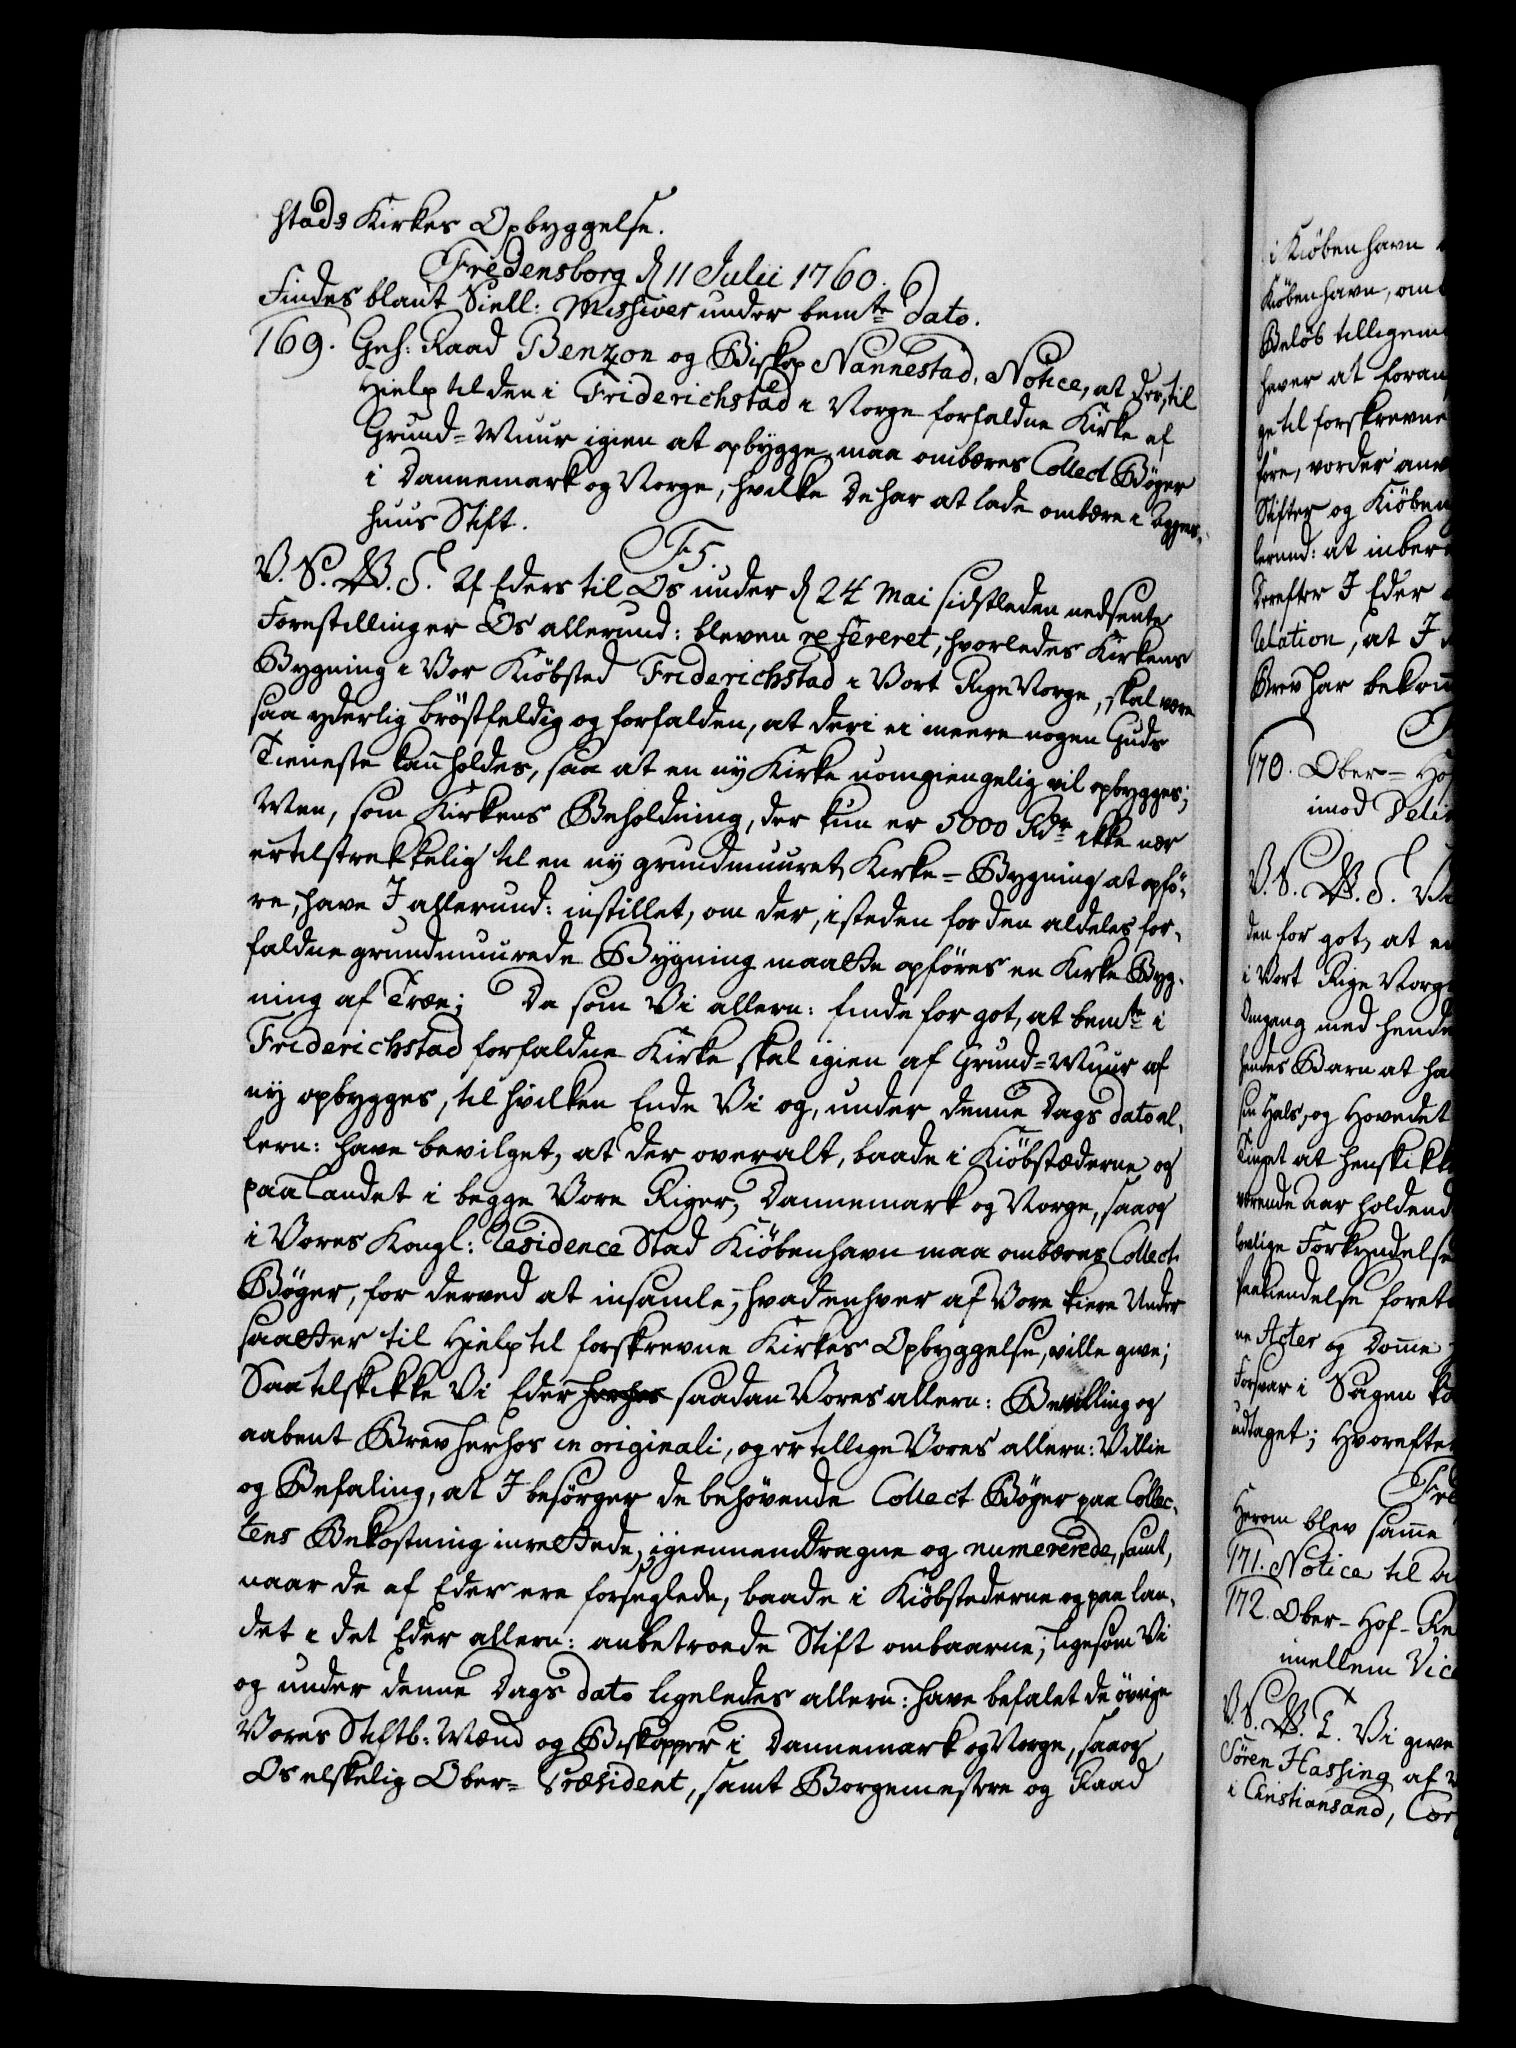 stads Kirkes Opbyggelse.
Fredensborg d 11 Julii 1760.
Findes blant Siell: Missiver under bemte dato.
169. Geh: Raad Benzon og Biskop Nannestad, Notice, at der, til
Hielp til den i Friderichstad i Norge forfaldne Kirke af
Grund-Muur igien at opbygge, maa ombæres Collect Bøger
i Dannemark og Norge, hvilke De har at lade ombære i Agges-
huus Stift.
F5.
V. S. W. G. Af Eders til Os under d 24 Mai sidstleden nedsente
Forestillinger Os allerund: bleven refereret, hvorledes Kirkens
Bygning i Vor Kiöbsted Friderichstad i Vort Rige Norge, skal være
saa yderlig bröstfeldig og forfalden, at deri ei meere nogen Guds
Tieneste kan holdes, saa at en ny Kirke uomgiengelig vil opbygges;
Men, som Kirkens Beholdning, der kun er 5000 Rdr ikke nær
er tilstrekkelig til en ny grundmuuret Kirke-Bygning at opfö-
re, have I allerund: instillet, om der, i steden for den aldeles for-
faldne grundmuurede Bygning maatte opföres en Kirke Byg-
ning af Træe; Da som Vi allern: finde for got, at bemte i
Friderichstad forfaldne Kirke skal igien af Grund-Muur af
ny opbygges, til hvilken Ende Vi og, under denne Dags dato al-
lern: have bevilget, at der overalt, baade i Kiöbstæderne og
paa Landet i begge Vore Riger, Dannemark og Norge, saa og
i Vores Kongl: Residence Stad Kiöbenhavn maa ombæres Collect
Bøger, for derved at insamle, hvad enhver af Vore kiere Under
saatter til Hielp til forskrevne Kirkes Opbyggelse, ville give;
Saa tilskikke Vi Eder herhos saadan Vores allern: Bevilling og
aabent Brev herhos in originali, og er tillige Vores allern: Villie
og Befaling, at I besörger de behövende Collect Böger paa Collec-
tens Bekostning inrettede, igiennemdragne og numererede, samt,
naar de af Eder ere forseglede, baade i Kiöbstederne og paa lan-
det i det Eder allern: anbetroede Stift ombaarne; ligesom Vi
og under denne Dags dato ligeledes allern: have befalet de övrige
Vores Stiftb: Mænd og Biskopper i Dannemark og Norge, saa og
Os elskelig Ober-Præsident, samt Borgemestere og Raad
i Kiöbenhavn
Kiöbenhavn, om
Belöb tilligem
haver at foran
ge til forskrevne
före, vorder anv
Stifter og Kiöben
lerund: at inber
Derefter I Eder
Relation, at I
Brev har bekom
170. Ober-Ho
imod Delin
V. S. W. G. Vi
den for got, at en
i Vort Rige Norge
Omgang med hende
hendes Barn at ha
sin Hals, og Hovedet
Tinget at henskikke
værende Aar holdend
lovlige Forkyndelse
Paakiendelse foreta
ne Acter og Domme
Forsvar i Sagen
udtaget; Hvorefter
Fre
Herom blev samme
171. Notice til
172. Ober-Hof-Re
imellem Vice
V. S. W. T. Vi give
Sören Hassing af
i Christiansand, Cor